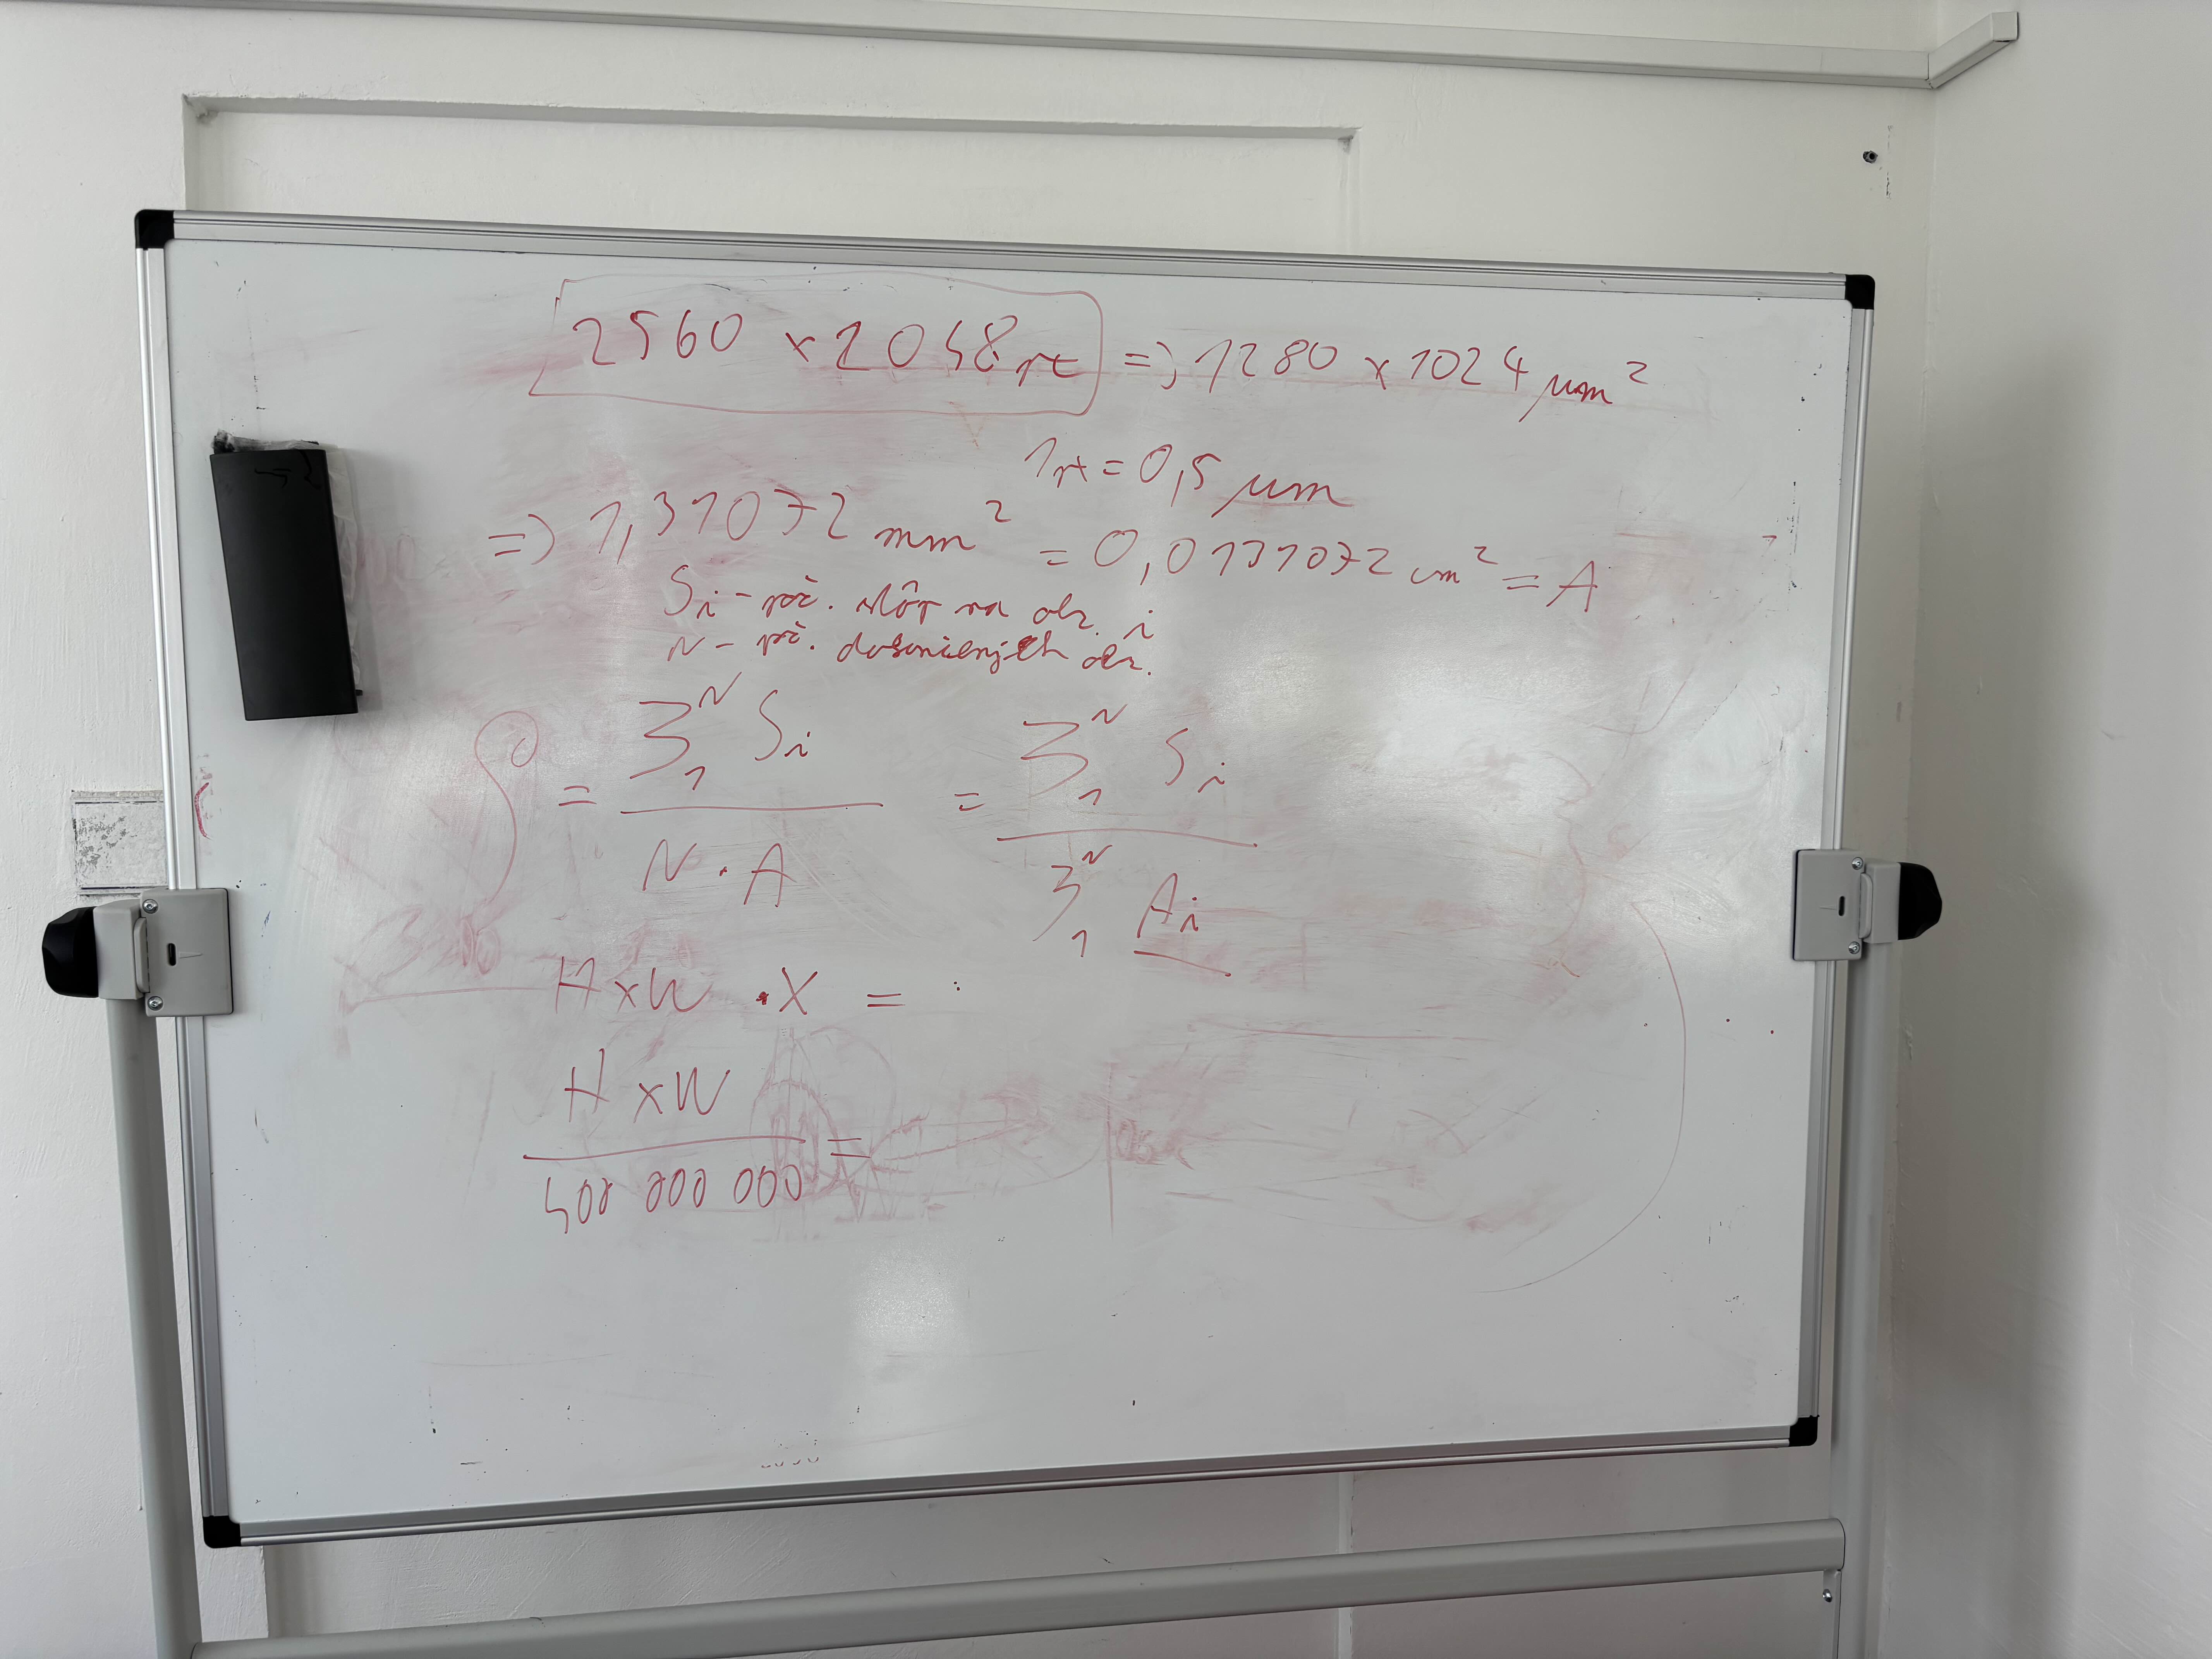 2560 x 2048 px => 1280 x 1024 μm²
1 px = 0,5 μm
=> 1,31072 mm² = 0,0131072 cm² = A
Si - poč. stôp na obr. i
N - poč. obr.
ρ = Σ₁ᴺ Si / N · A = Σ₁ᴺ Si / Σ₁ᴺ Ai
H x W · X =
H x W / 400 000 000 =